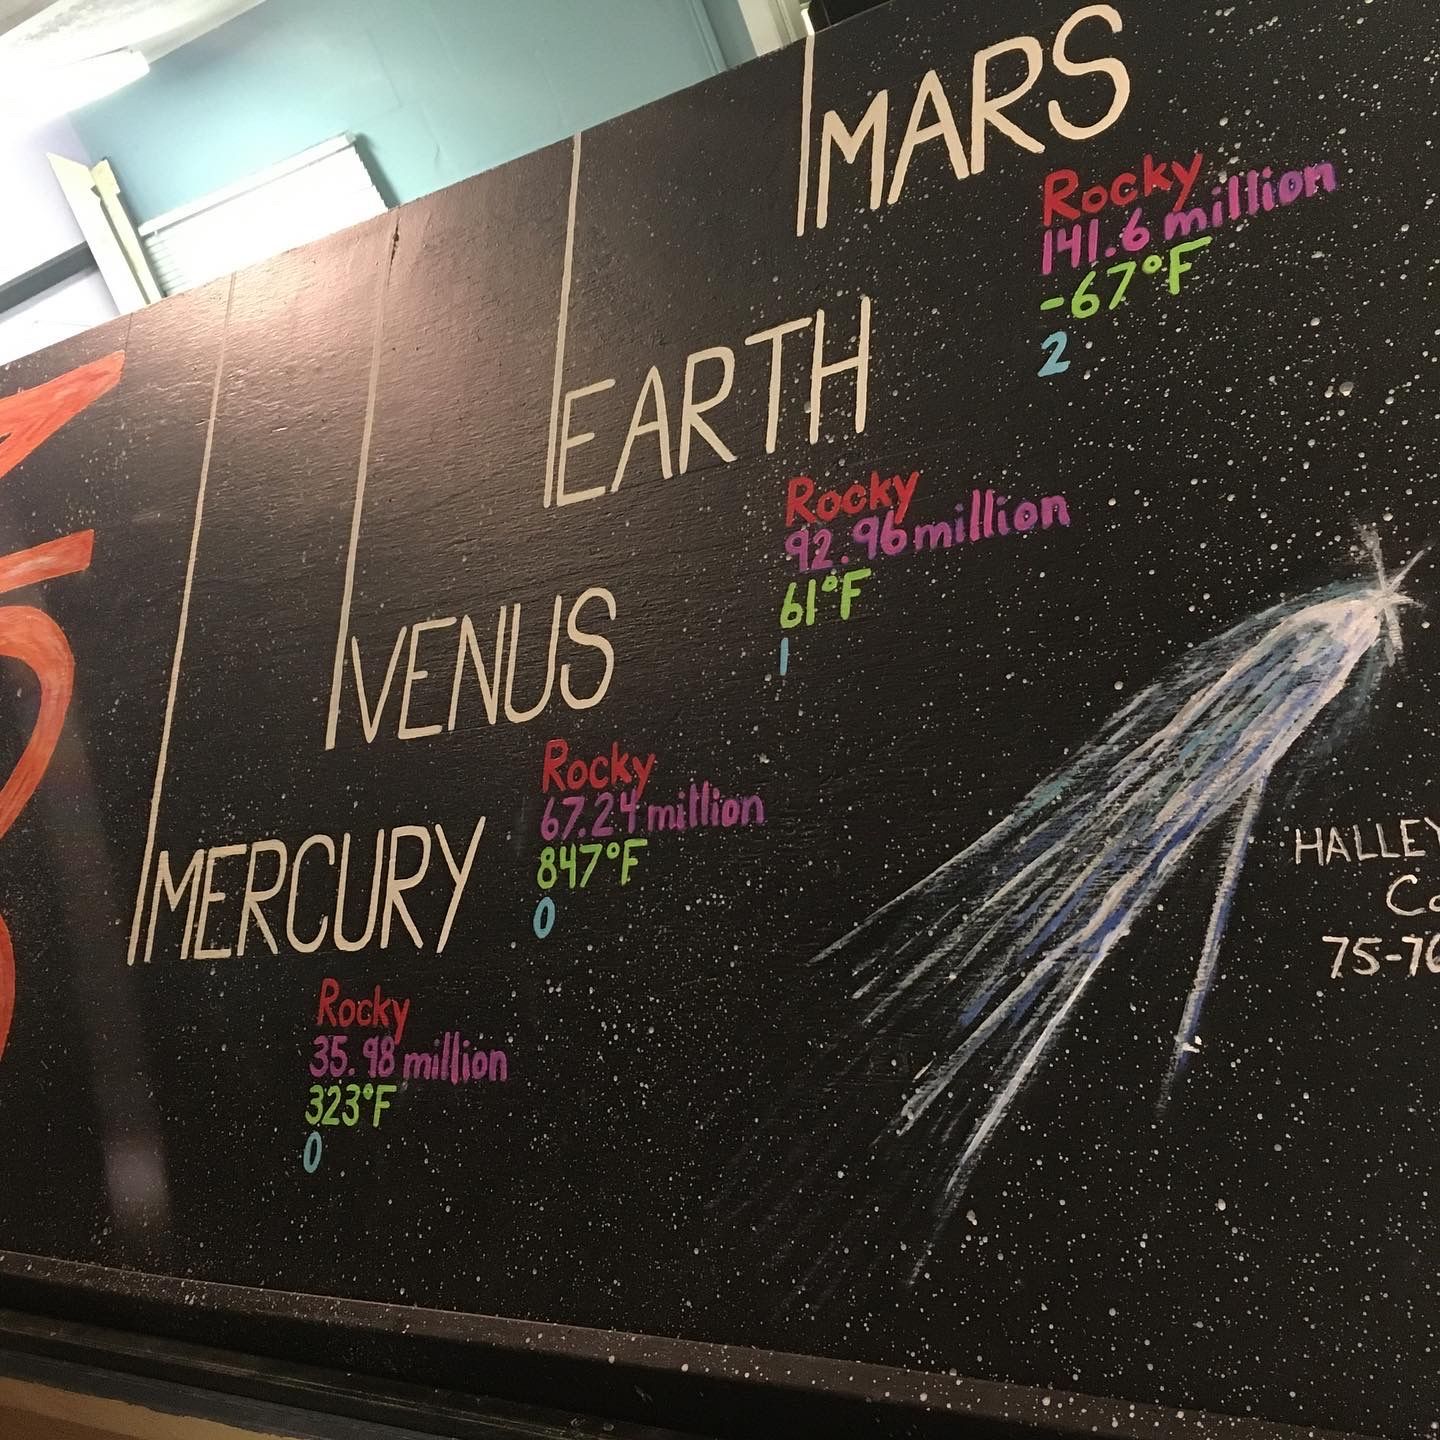 MARS
Rocky
141.6 million
-67°F
2
EARTH
Rocky
92.96 million
61°F
1
VENUS
Rocky
67.24 million
847°F
0
MERCURY
Rocky
35.98 million
323°F
0
HALLEY
75-76